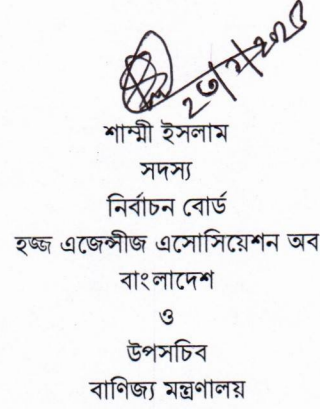 ২৩/২/২০২৫
শাম্মী ইসলাম
সদস্য
নির্বাচন বোর্ড
হজ্জ এজেন্সীজ এসোসিয়েশন অব
বাংলাদেশ
ও
উপসচিব
বাণিজ্য মন্ত্রণালয়